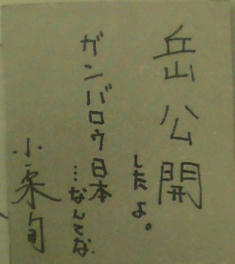 岳公開
したよ。
ガンバロウ日本
…なんてな
小栗旬